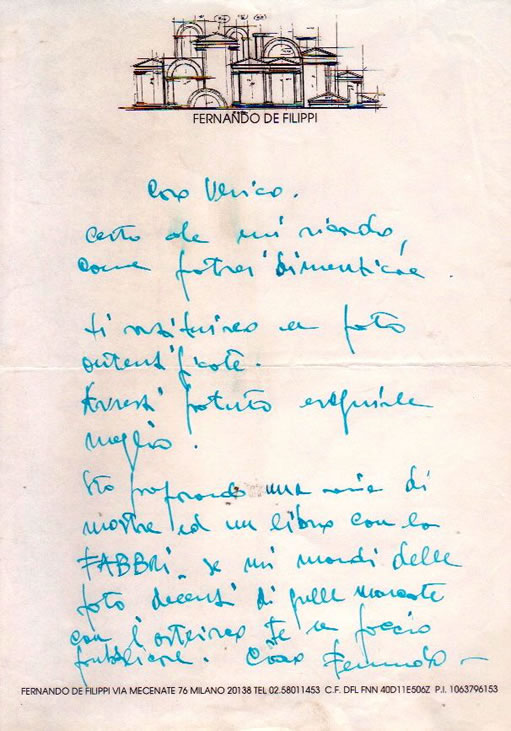 FERNANDO DE FILIPPI
Caro Verico.
certo che mi ricordo,
come potrei dimenticare.
ti restituisco le foto
autentificate.
Avresti potuto eseguirle
meglio!
Sto preparando una serie di
mostre ed un libro con la
FABBRI se mi mandi delle
foto decenti di quelle marcate
con l'asterisco te le faccio
pubblicare. Ciao Fernando
FERNANDO DE FILIPPI VIA MECENATE 76 MILANO 20138 TEL 02.58011453 C.F. DFL FNN 40D11E506Z P.I. 1063796153